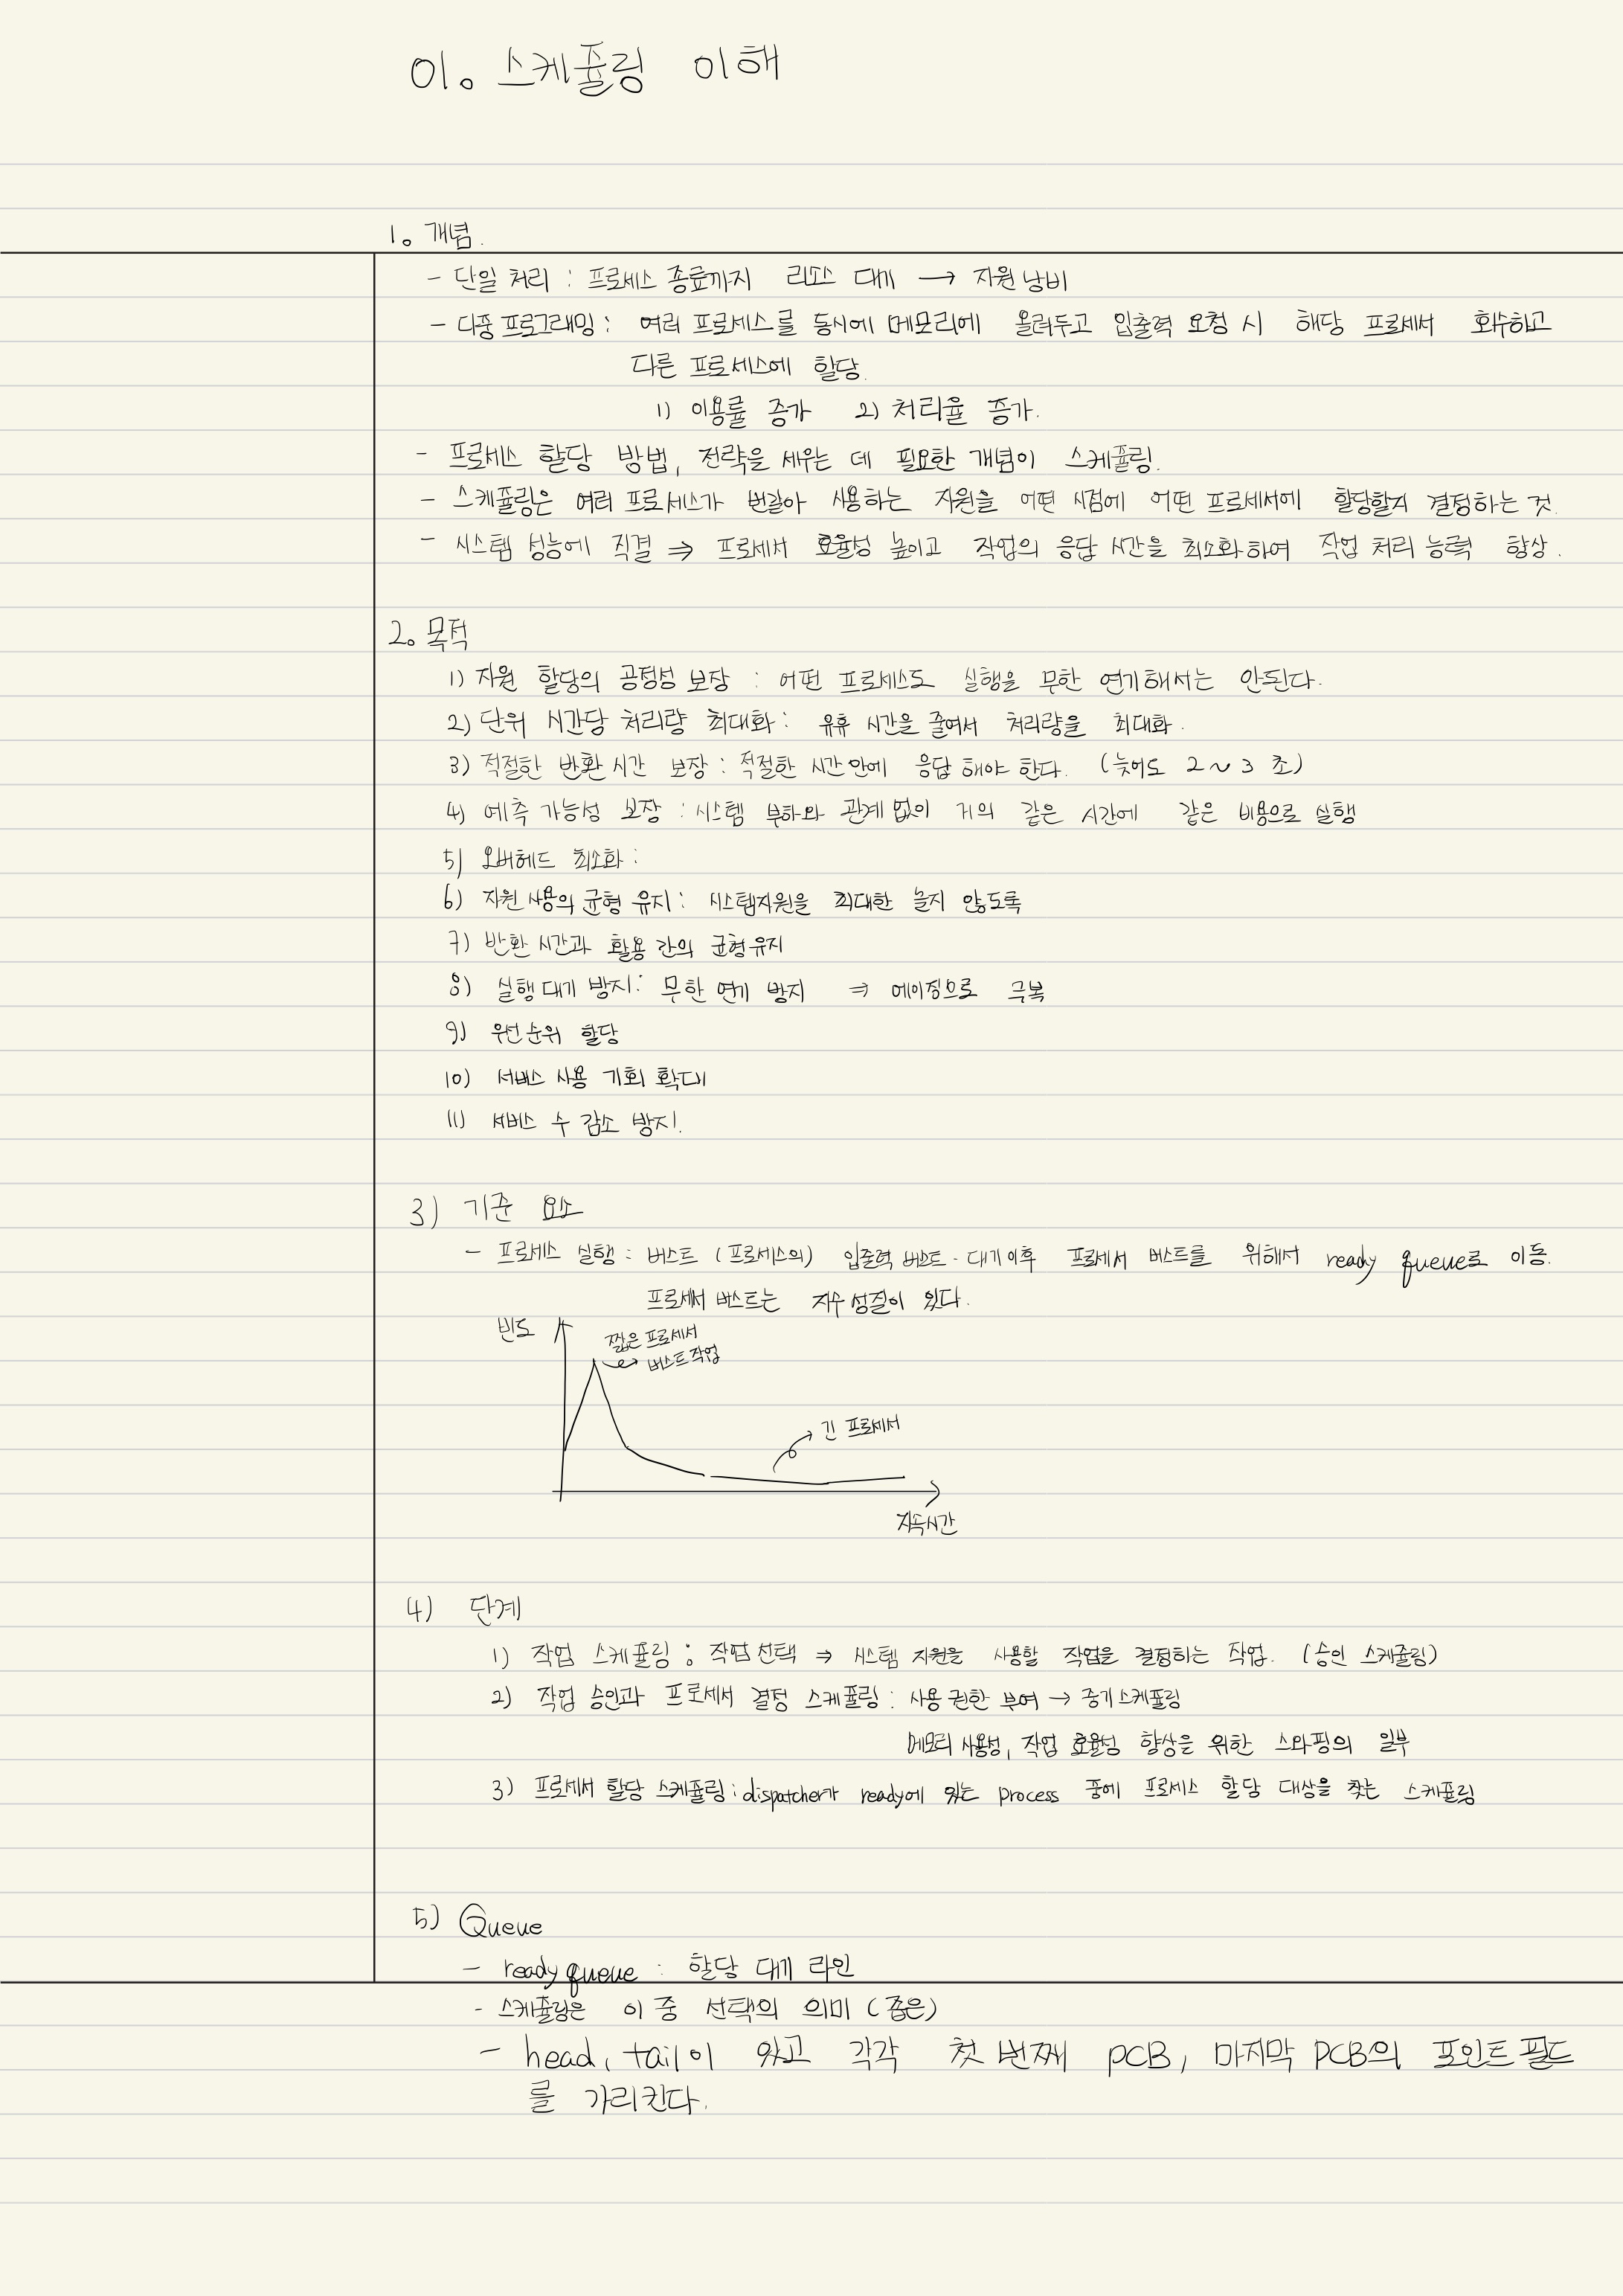 01. 스케쥴링 이해
1. 개념.
- 단일 처리 : 프로세스 종료까지 리소스 대기 → 자원 낭비
- 다중 프로그래밍 : 여러 프로세스를 동시에 메모리에 올려두고 입출력 요청 시 해당 프로세서 회수하고
다른 프로세스에 할당.
1) 이용률 증가 2) 처리율 증가.
- 프로세스 할당 방법, 전략을 세우는 데 필요한 개념이 스케쥴링.
- 스케쥴링은 여러 프로세스가 번갈아 사용하는 자원을 어떤 시점에 어떤 프로세서에 할당할지 결정하는 것.
- 시스템 성능에 직결 ⇒ 프로세서 효율성 높이고 작업의 응답 시간을 최소화하여 작업 처리 능력 향상.
2. 목적
1) 자원 할당의 공정성 보장 : 어떤 프로세스도 실행을 무한 연기해서는 안된다.
2) 단위 시간당 처리량 최대화 : 유휴 시간을 줄여서 처리량을 최대화.
3) 적절한 반환 시간 보장 : 적절한 시간 안에 응답 해야 한다. (늦어도 2~3 초)
4) 예측 가능성 보장 : 시스템 부하와 관계 없이 거의 같은 시간에 같은 비용으로 실행
5) 오버헤드 최소화 :
6) 자원 사용의 균형 유지 : 시스템자원을 최대한 놀지 않도록
7) 반환 시간과 활용 간의 균형 유지
8) 실행 대기 방지 : 무한 연기 방지 ⇒ 에이징으로 극복
9) 우선 순위 할당
10) 서비스 사용 기회 확대
11) 서비스 수 감소 방지.
3) 기준 요소
- 프로세스 실행 : 버스트 (프로세스의) 입출력 버스트 - 대기 이후 프로세서 버스트를 위해서 ready queue로 이동.
프로세서 버스트는 지수 성질이 있다.
빈도
짧은 프로세서
버스트 작업
긴 프로세서
지속시간
4) 단계
1) 작업 스케쥴링 : 작업 선택 ⇒ 시스템 자원을 사용할 작업을 결정하는 작업. (승인 스케쥴링)
2) 작업 승인과 프로세서 결정 스케쥴링 : 사용 권한 부여 → 중기 스케쥴링
메모리 사용성, 작업 효율성 향상을 위한 스와핑의 일부
3) 프로세서 할당 스케쥴링 : dispatcher가 ready에 있는 process 중에 프로세스 할당 대상을 찾는 스케쥴링
5) Queue
- ready queue : 할당 대기 라인
- 스케쥴링은 이 중 선택의 의미 (좁은)
- head, tail이 있고 각각 첫 번째 PCB, 마지막 PCB의 포인트 필드
를 가리킨다.